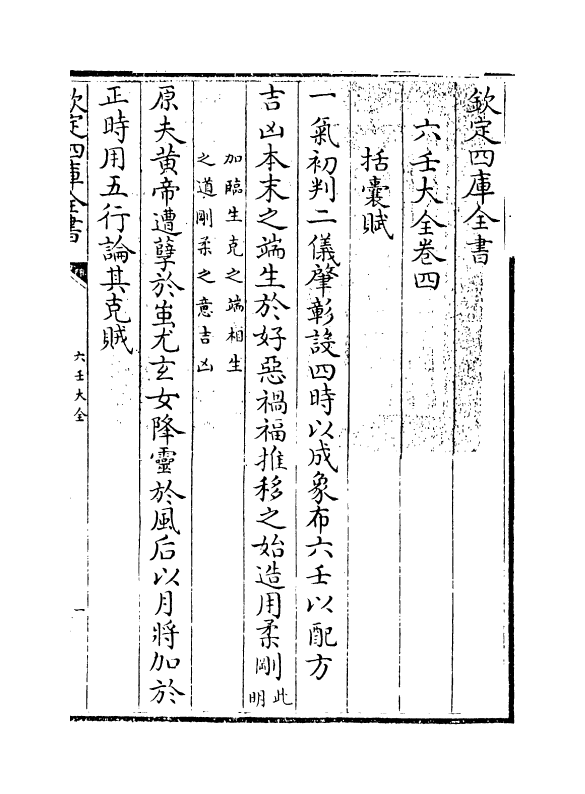 欽定四庫全書
六壬大全卷四
括囊賦
一氣初判二儀肇彰設四時以成象布六壬以配方
吉凶本末之端生於好惡禍福推移之始造用柔剛此
明
加臨生克之端相生
之道剛柔之意吉凶
原夫黄帝遭孽於蚩尤玄女降靈於風后以月將加於
正時用五行論其克賊
欽定四庫全書
六壬大全
一